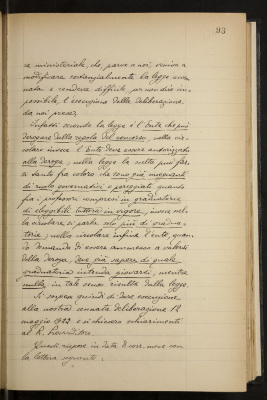 93
re ministeriale, che, parve a noi, veniva a
modificare sostanzialmente la legge emanata
e rendeva difficile, per non dire impossibile,
l'esecuzione della deliberazione
da noi presa.
Infatti secondo la legge è l'Ente che può
derogare dalla regola del concorso, nella circolare
invece l'Ente deve essere autorizzato
alla deroga; nella legge la scelta può farsi
tanto fra coloro che sono già insegnanti
di ruolo governativi o pareggiati quando
fra i professori compresi in graduatorie
di eleggibili tuttora in vigore, invece nella
circolare si parla solo più di graduatorie;
nella circolare infine l'Ente, quando
domanda di essere ammesso a valersi
della deroga, deve già sapere di quale
graduatoria intenda giovarsi, mentre
nulla in tale senso risulta dalla legge.
Si sospese quindi di dare esecuzione
alla nostra cennata deliberazione 12
maggio 1923 e si chiesero schiarimenti
al R. Provveditore.
Questi rispose in data 8 corr. mese con
la lettera seguente: